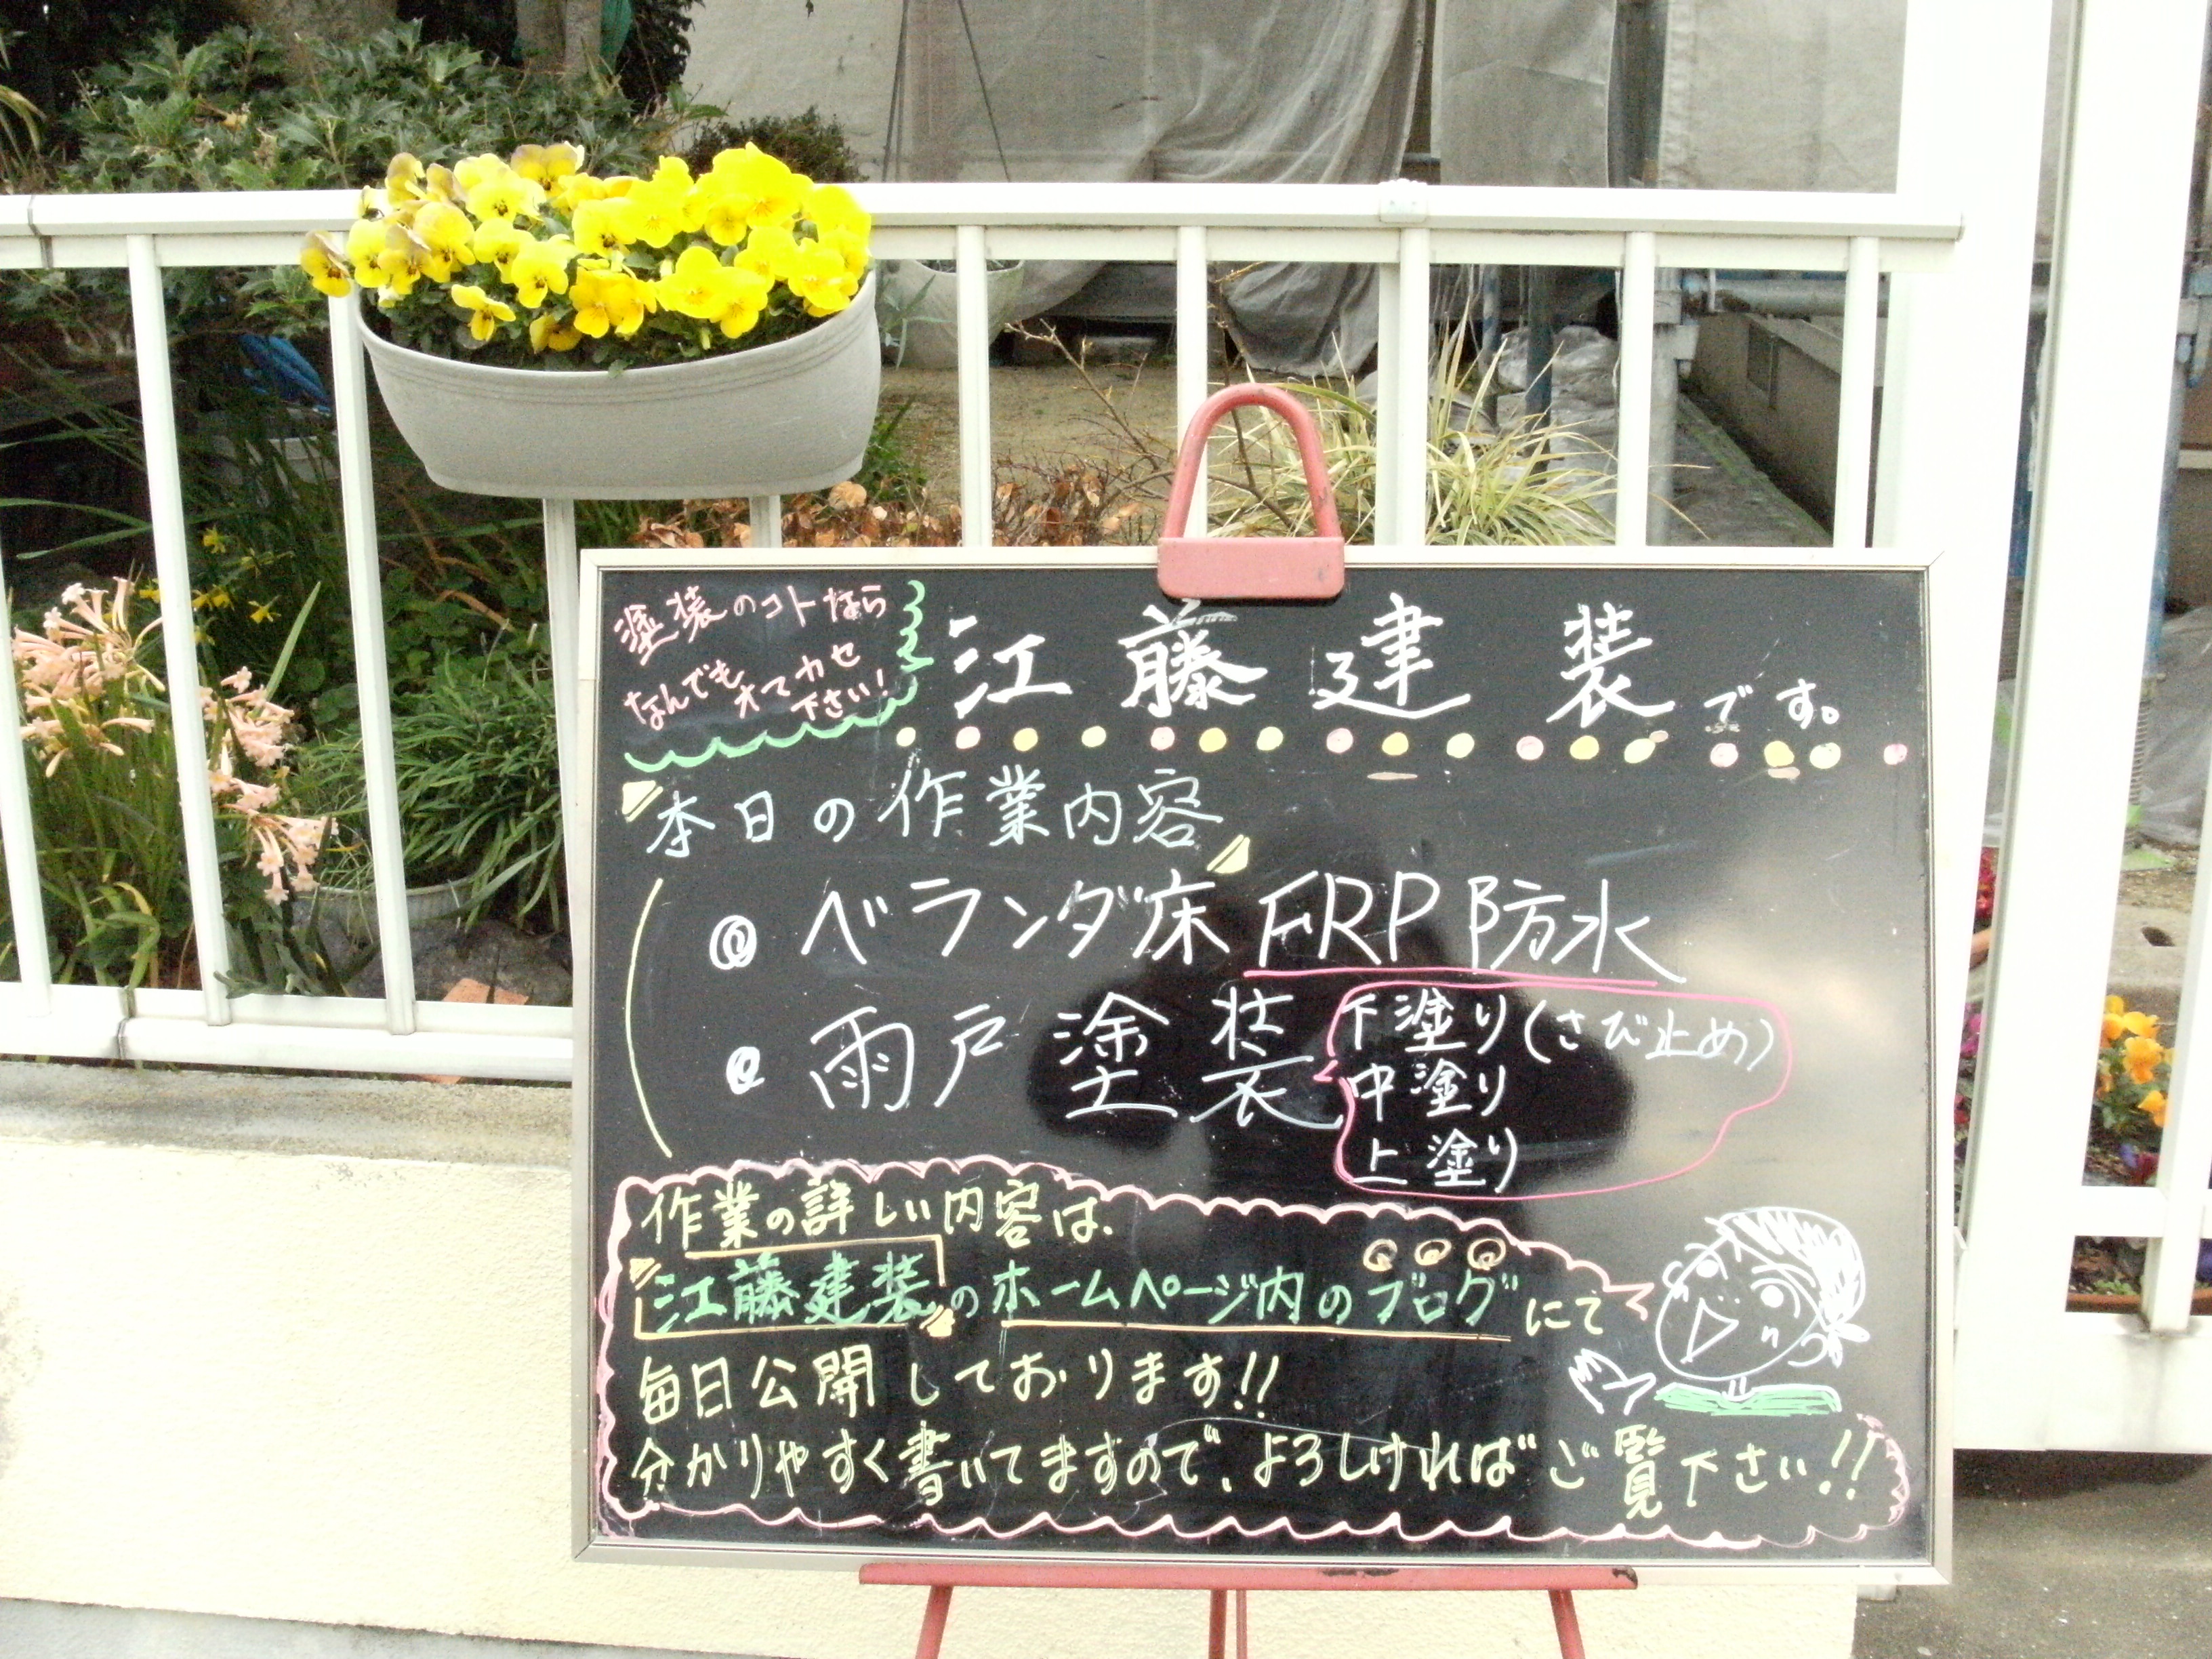 塗装のコトなら
なんでも
オマカセ
下さい!
江藤建装です。
本日の作業内容
◎ ベランダ床FRP防水
◎ 雨戸塗装
下塗り(さび止め)
中塗り
上塗り
作業の詳しい内容は、
江藤建装のホームページ内のブログにて
毎日公開しております!!
分かりやすく書いてますので、よろしければご覧下さい!!